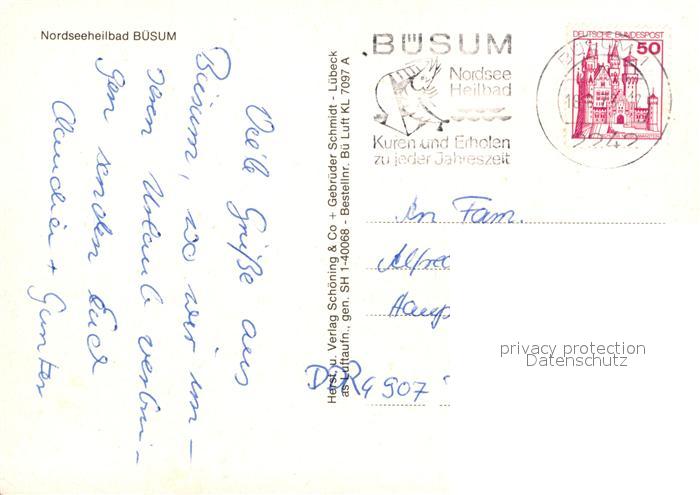 Nordseeheilbad BÜSUM
Viele Grüße aus
Büsum, wo wir un-
seren Urlaub verbrin-
gen senden Euch
Claudia + Gunter
Herst. u. Verlag Schöning & Co + Gebrüder Schmidt - Lübeck
as Luftaufn., gen. SH 1-40068 - Bestellnr. Bü Luft KL 7097 A
BÜSUM
Nordsee
Heilbad
Kuren und Erholen
zu jeder Jahreszeit
DEUTSCHE BUNDESPOST
50
BÜSUM 1
2242
An Fam.
Alfred
Haup
DDR 4907
privacy protection
Datenschutz